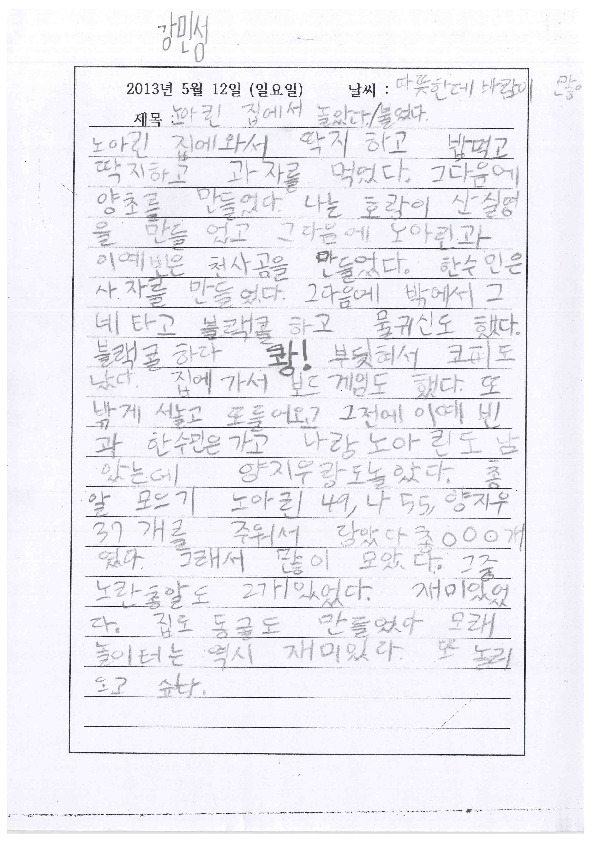 강민성
2013년 5월 12일 (일요일) 날씨 : 따뜻한데 바람이 많이
제목 : 노아린 집에서 놀았다/불었다.
노아린 집에와서 딱지 하고 밥먹고
딱지하고 과자를 먹었다. 그다음에
양초를 만들었다. 나는 호랑이
을 만들 었고 그다음에 노아린과
이예빈은 천사곰을 만들었다. 한수민은
사자를 만들었다. 그다음에 밖에서 그
네 타고 블랙홀 하고 물귀신도 했다.
블랙홀 하다 쾅! 부딪혀서 코피도
났다. 집에 가서 보드 게임도 했다. 또
밖게 서놀고 또들어오고 그전에 이예빈
과 한수민은가고 나랑노아린도 남
았는데 양지우랑도놀았다. 총
알 모으기 노아린 49, 나 55, 양지우
37 개를 주워서 담았다 총000개
였다. 그래서 많이 모았다. 그중
노란총알도 2개있었다. 재미있었
다. 집도 동굴도 만들었다 모래
놀이터는 역시 재미있다. 또 놀러
오고 싶다.